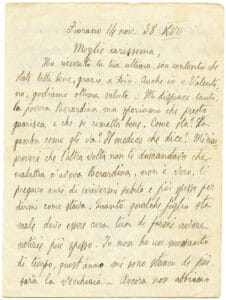 Fiorano 14 nov. 38 XVII
Moglie carissima,
Ho ricevuto la tua ultima, son contento che
state tutte bene, grazie a Dio. Anche io e Valenti-
no, godiamo ottima salute. Mi dispiace tanto
la povera Berardina, ma speriamo che presto
guarisca, e che se rimetta bene. Come sta? La
gamba come gli va? Il medico che dice? Mi rim-
proveri che l'altra volta non ti domandavo che
malattia c'aveva Berardina, non è vero, ti
pregavo anzi di scrivermi subito e più spesso per
dirmi come stava. Quanto qualche figlio sta
male deve esser cura tua di farmi avere
notizie più spesso. Io non ho un momento
di tempo, quest'anno mi sono stanco di più
sarà la vecchiaia. Ancora non abbiamo